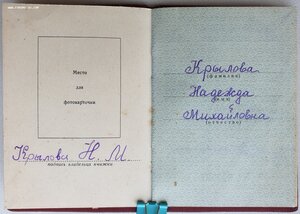 Место
для
фотокарточки
Крылова Н. М
подпись владельца книжки
Крылова
(фамилия)
Надежда
(имя)
Михайловна
(отчество)